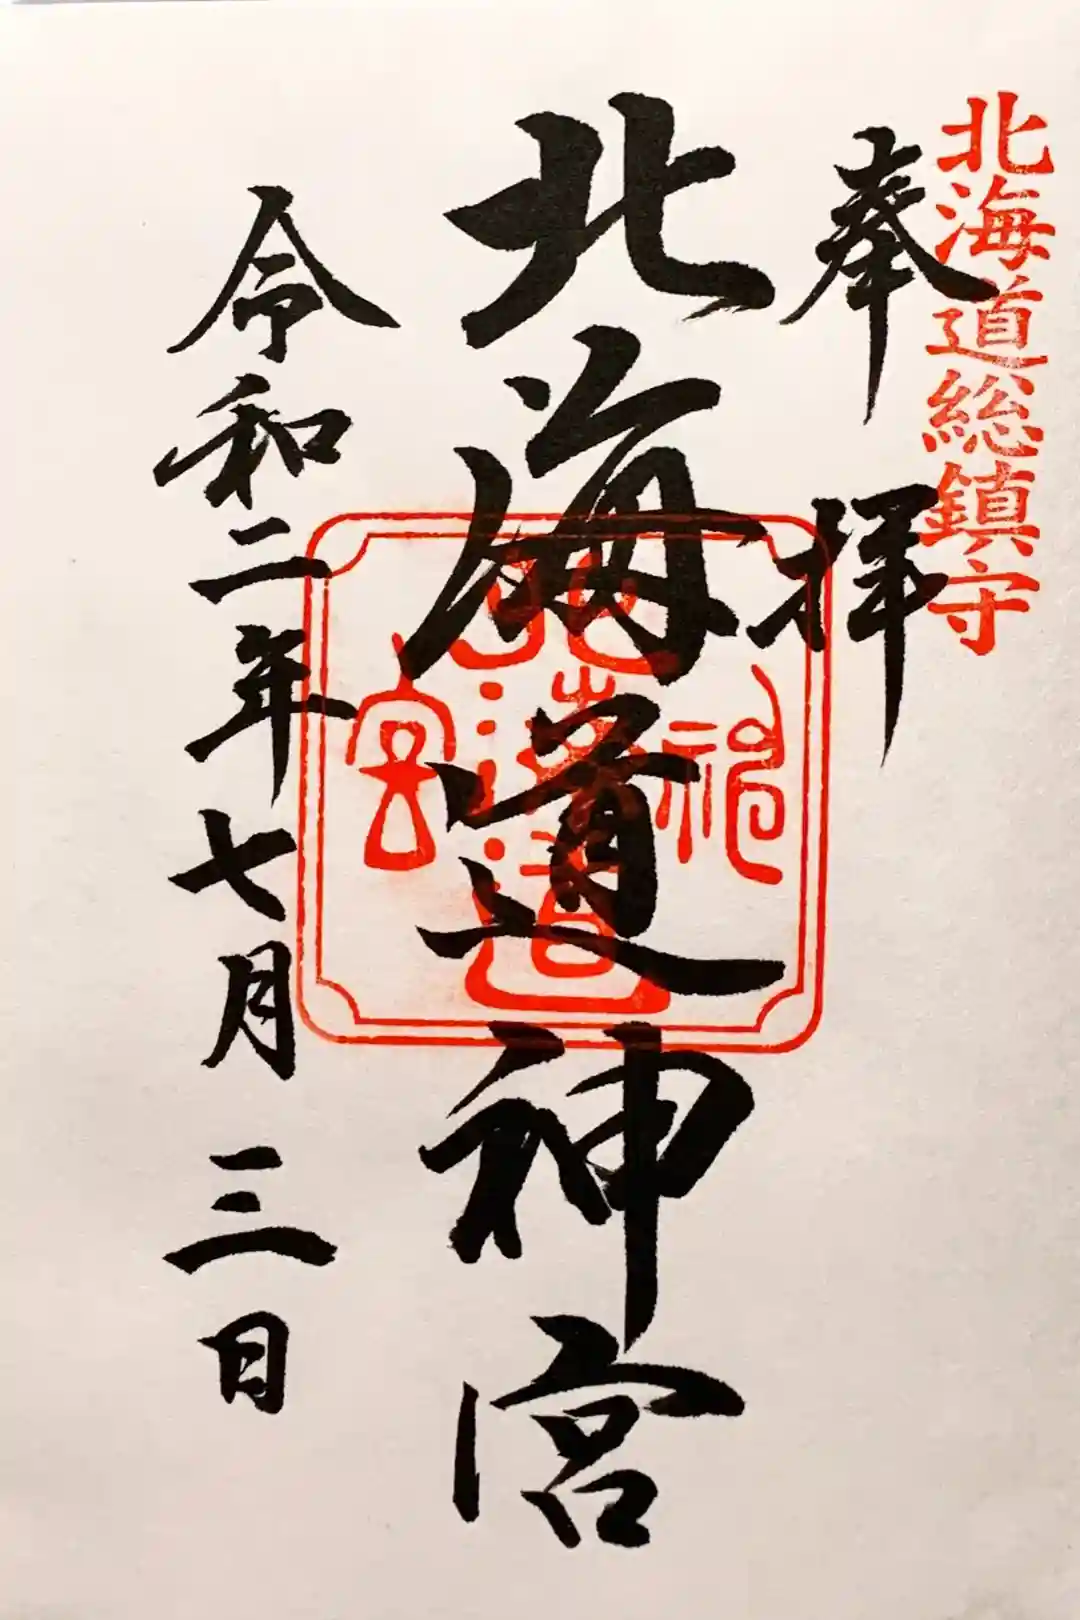 北海道総鎮守
奉拝
北海道神宮
北海道神宮
令和二年七月三日